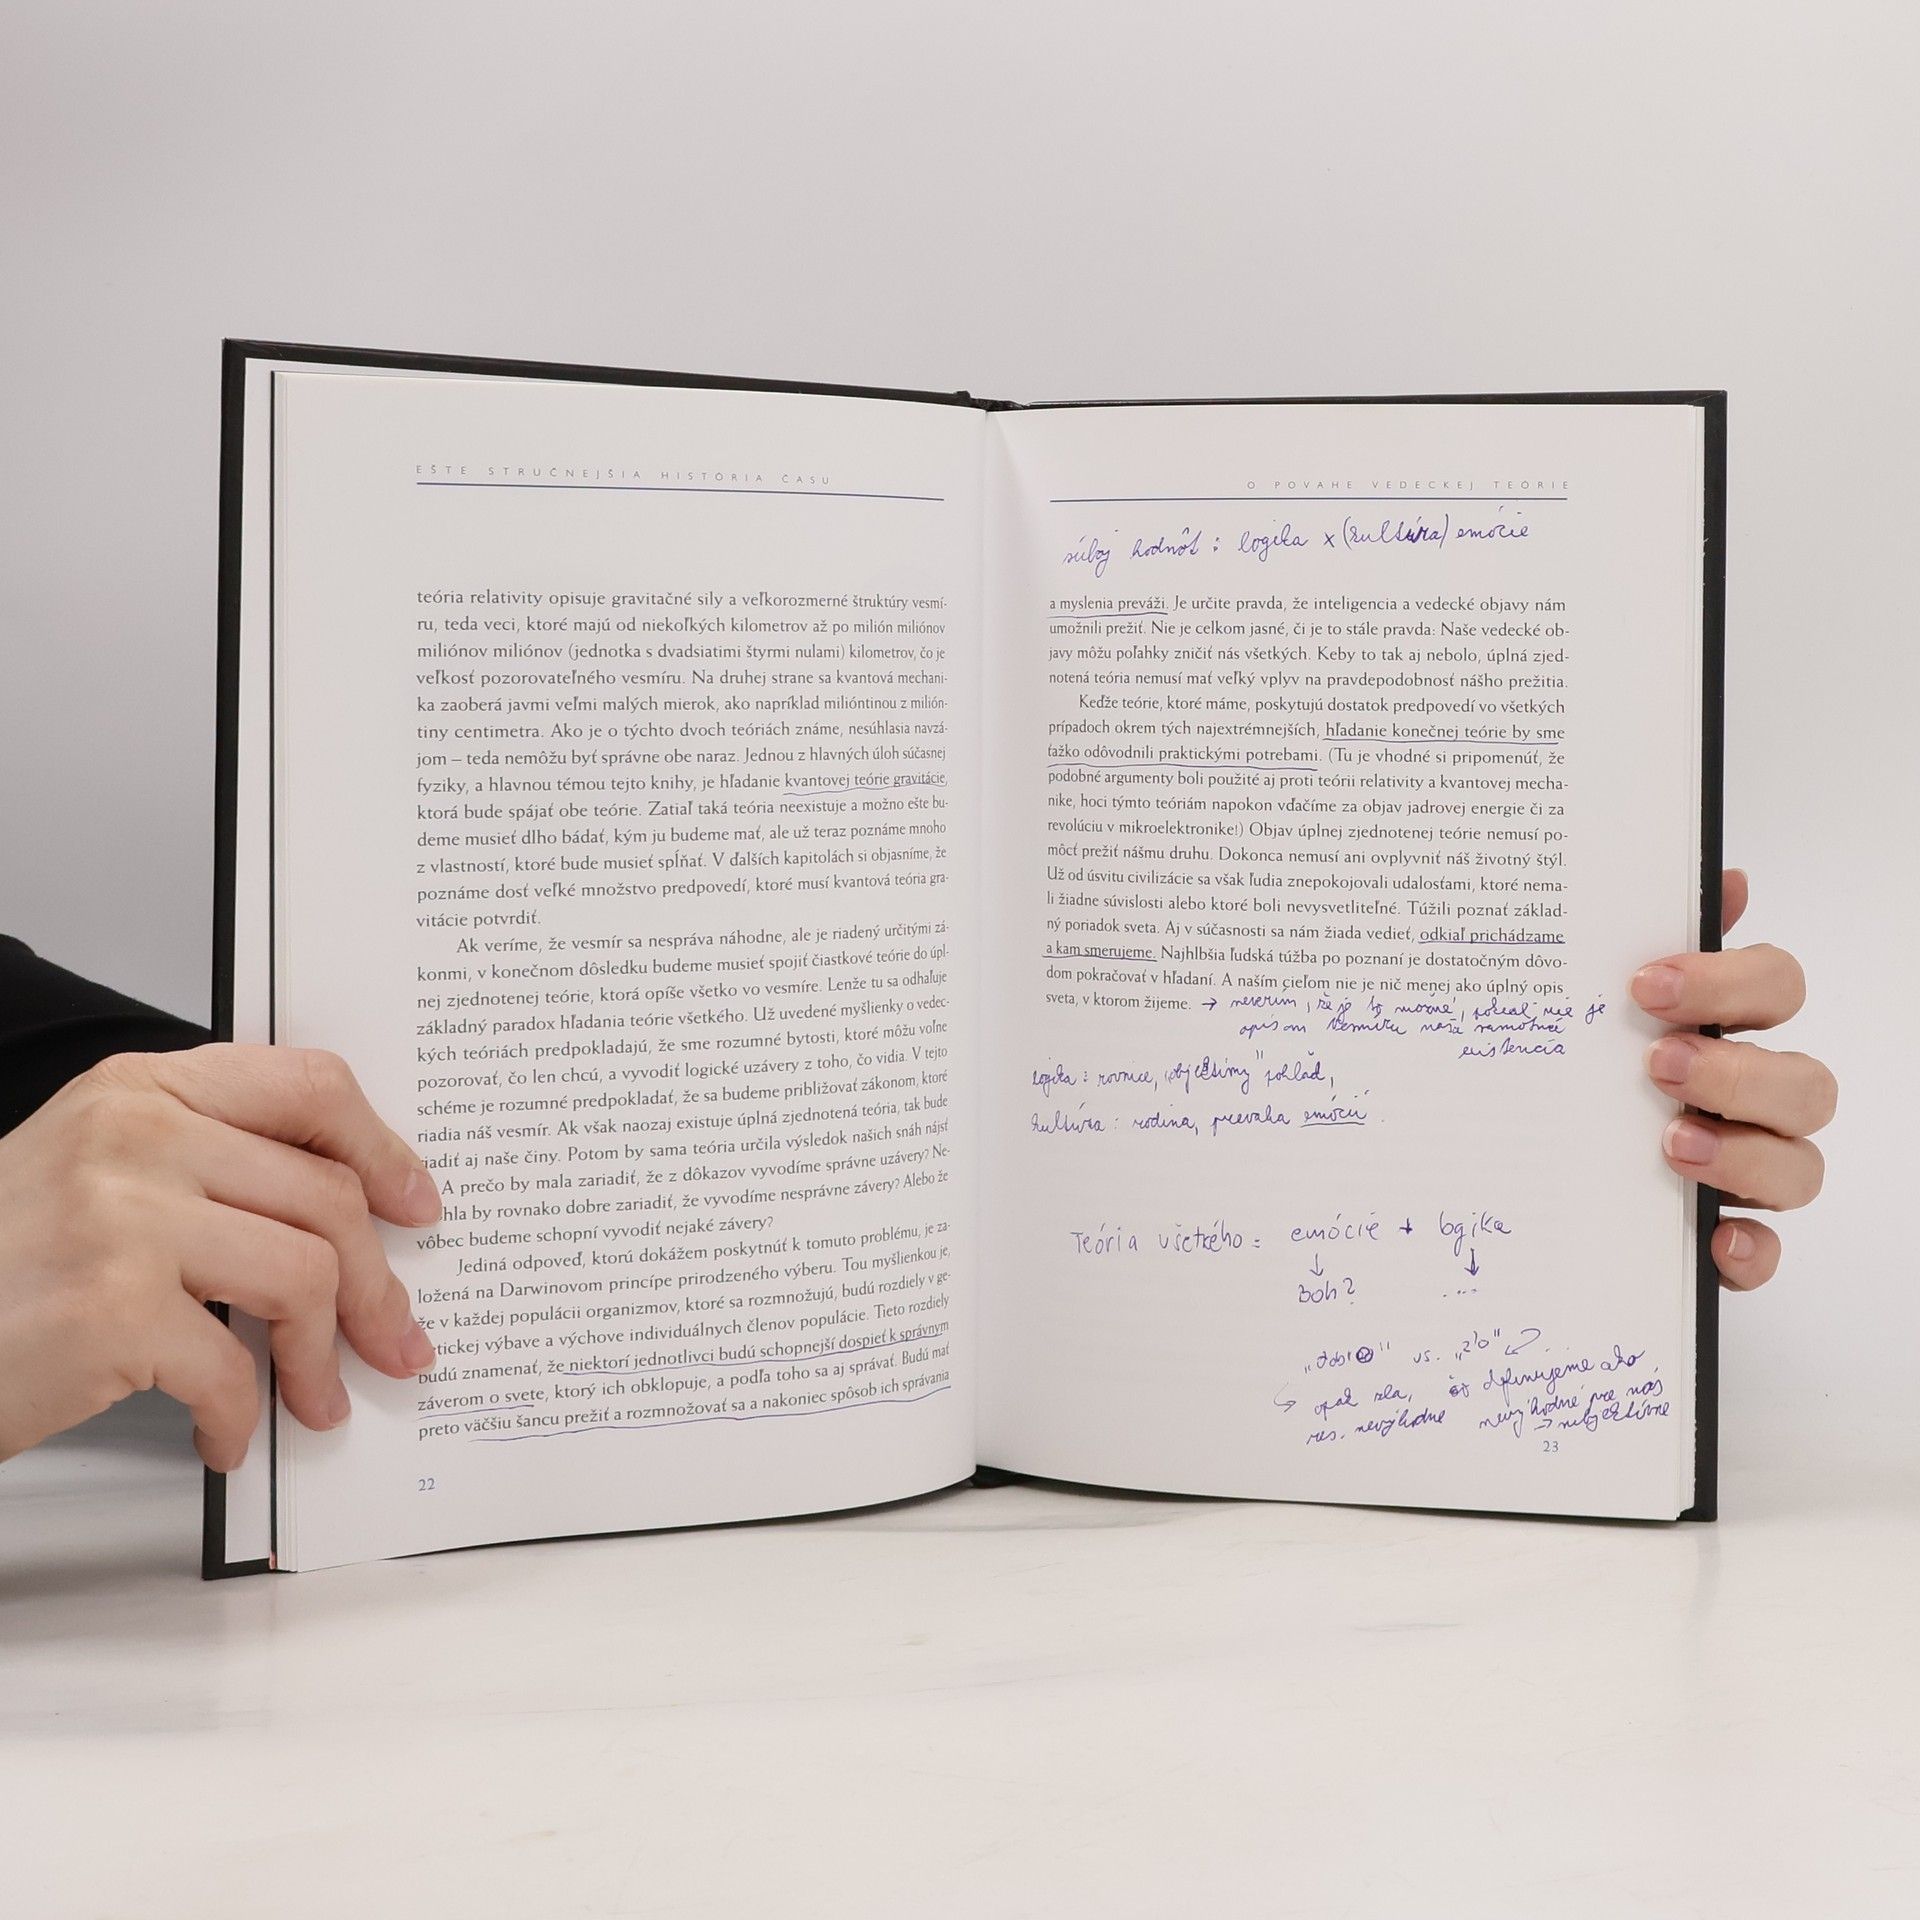 EŠTE STRUČNEJŠIA HISTÓRIA ČASU
teória relativity opisuje gravitačné sily a veľkorozmerné štruktúry vesmí-
ru, teda veci, ktoré majú od niekoľkých kilometrov až po milión miliónov
miliónov miliónov (jednotka s dvadsiatimi štyrmi nulami) kilometrov, čo je
veľkosť pozorovateľného vesmíru. Na druhej strane sa kvantová mechani-
ka zaoberá javmi veľmi malých mierok, ako napríklad milióntinou z milión-
tiny centimetra. Ako je o týchto dvoch teóriách známe, nesúhlasia navzá-
jom – teda nemôžu byť správne obe naraz. Jednou z hlavných úloh súčasnej
fyziky, a hlavnou témou tejto knihy, je hľadanie kvantovej teórie gravitácie,
ktorá bude spájať obe teórie. Zatiaľ taká teória neexistuje a možno ešte bu-
deme musieť dlho bádať, kým ju budeme mať, ale už teraz poznáme mnoho
z vlastností, ktoré bude musieť spĺňať. V ďalších kapitolách si objasníme, že
poznáme dosť veľké množstvo predpovedí, ktoré musí kvantová teória gra-
vitácie potvrdiť.
Ak veríme, že vesmír sa nespráva náhodne, ale je riadený určitými zá-
konmi, v konečnom dôsledku budeme musieť spojiť čiastkové teórie do úpl-
nej zjednotenej teórie, ktorá opíše všetko vo vesmíre. Lenže tu sa odhaľuje
základný paradox hľadania teórie všetkého. Už uvedené myšlienky o vedec-
kých teóriách predpokladajú, že sme rozumné bytosti, ktoré môžu voľne
pozorovať, čo len chcú, a vyvodiť logické uzávery z toho, čo vidia. V tejto
schéme je rozumné predpokladať, že sa budeme približovať zákonom, ktoré
riadia náš vesmír. Ak však naozaj existuje úplná zjednotená teória, tak bude
iadiť aj naše činy. Potom by sama teória určila výsledok našich snáh nájsť
A prečo by mala zariadiť, že z dôkazov vyvodíme správne uzávery? Ne-
hla by rovnako dobre zariadiť, že vyvodíme nesprávne závery? Alebo že
vôbec budeme schopní vyvodiť nejaké závery?
Jediná odpoveď, ktorú dokážem poskytnúť k tomuto problému, je za-
ložená na Darwinovom princípe prirodzeného výberu. Tou myšlienkou je,
že v každej populácii organizmov, ktoré sa rozmnožujú, budú rozdiely v ge-
tickej výbave a výchove individuálnych členov populácie. Tieto rozdiely
budú znamenať, že niektorí jednotlivci budú schopnejší dospieť k správnym
záverom o svete, ktorý ich obklopuje, a podľa toho sa aj správať. Budú mať
preto väčšiu šancu prežiť a rozmnožovať sa a nakoniec spôsob ich správania
22
O POVAHE VEDECKEJ TEÓRIE
súboj hodnôt : logika x (kultúra) emócie
a myslenia preváži. Je určite pravda, že inteligencia a vedecké objavy nám
umožnili prežiť. Nie je celkom jasné, či je to stále pravda: Naše vedecké ob-
javy môžu poľahky zničiť nás všetkých. Keby to tak aj nebolo, úplná zjed-
notená teória nemusí mať veľký vplyv na pravdepodobnosť nášho prežitia.
Keďže teórie, ktoré máme, poskytujú dostatok predpovedí vo všetkých
prípadoch okrem tých najextrémnejších, hľadanie konečnej teórie by sme
ťažko odôvodnili praktickými potrebami. (Tu je vhodné si pripomenúť, že
podobné argumenty boli použité aj proti teórii relativity a kvantovej mecha-
nike, hoci týmto teóriám napokon vďačíme za objav jadrovej energie či za
revolúciu v mikroelektronike!) Objav úplnej zjednotenej teórie nemusí po-
môcť prežiť nášmu druhu. Dokonca nemusí ani ovplyvniť náš životný štýl.
Už od úsvitu civilizácie sa však ľudia znepokojovali udalosťami, ktoré nema-
li žiadne súvislosti alebo ktoré boli nevysvetliteľné. Túžili poznať základ-
ný poriadok sveta. Aj v súčasnosti sa nám žiada vedieť, odkiaľ prichádzame
a kam smerujeme. Najhlbšia ľudská túžba po poznaní je dostatočným dôvo-
dom pokračovať v hľadaní. A naším cieľom nie je nič menej ako úplný opis
sveta, v ktorom žijeme. → neverím, že je to možné, pokiaľ nie je
opisom vesmíru naša samotná
existencia
logika : rovnice, „objektívny" pohľad,
kultúra : rodina, prevaha emócií.
Teória všetkého = emócie + logika
↓ ↓
Boh? ....
„dobro" vs. „zlo"
opak zla, definujeme ako
res. nevýhodne nevýhodné pre nás
→ subjektívne
23